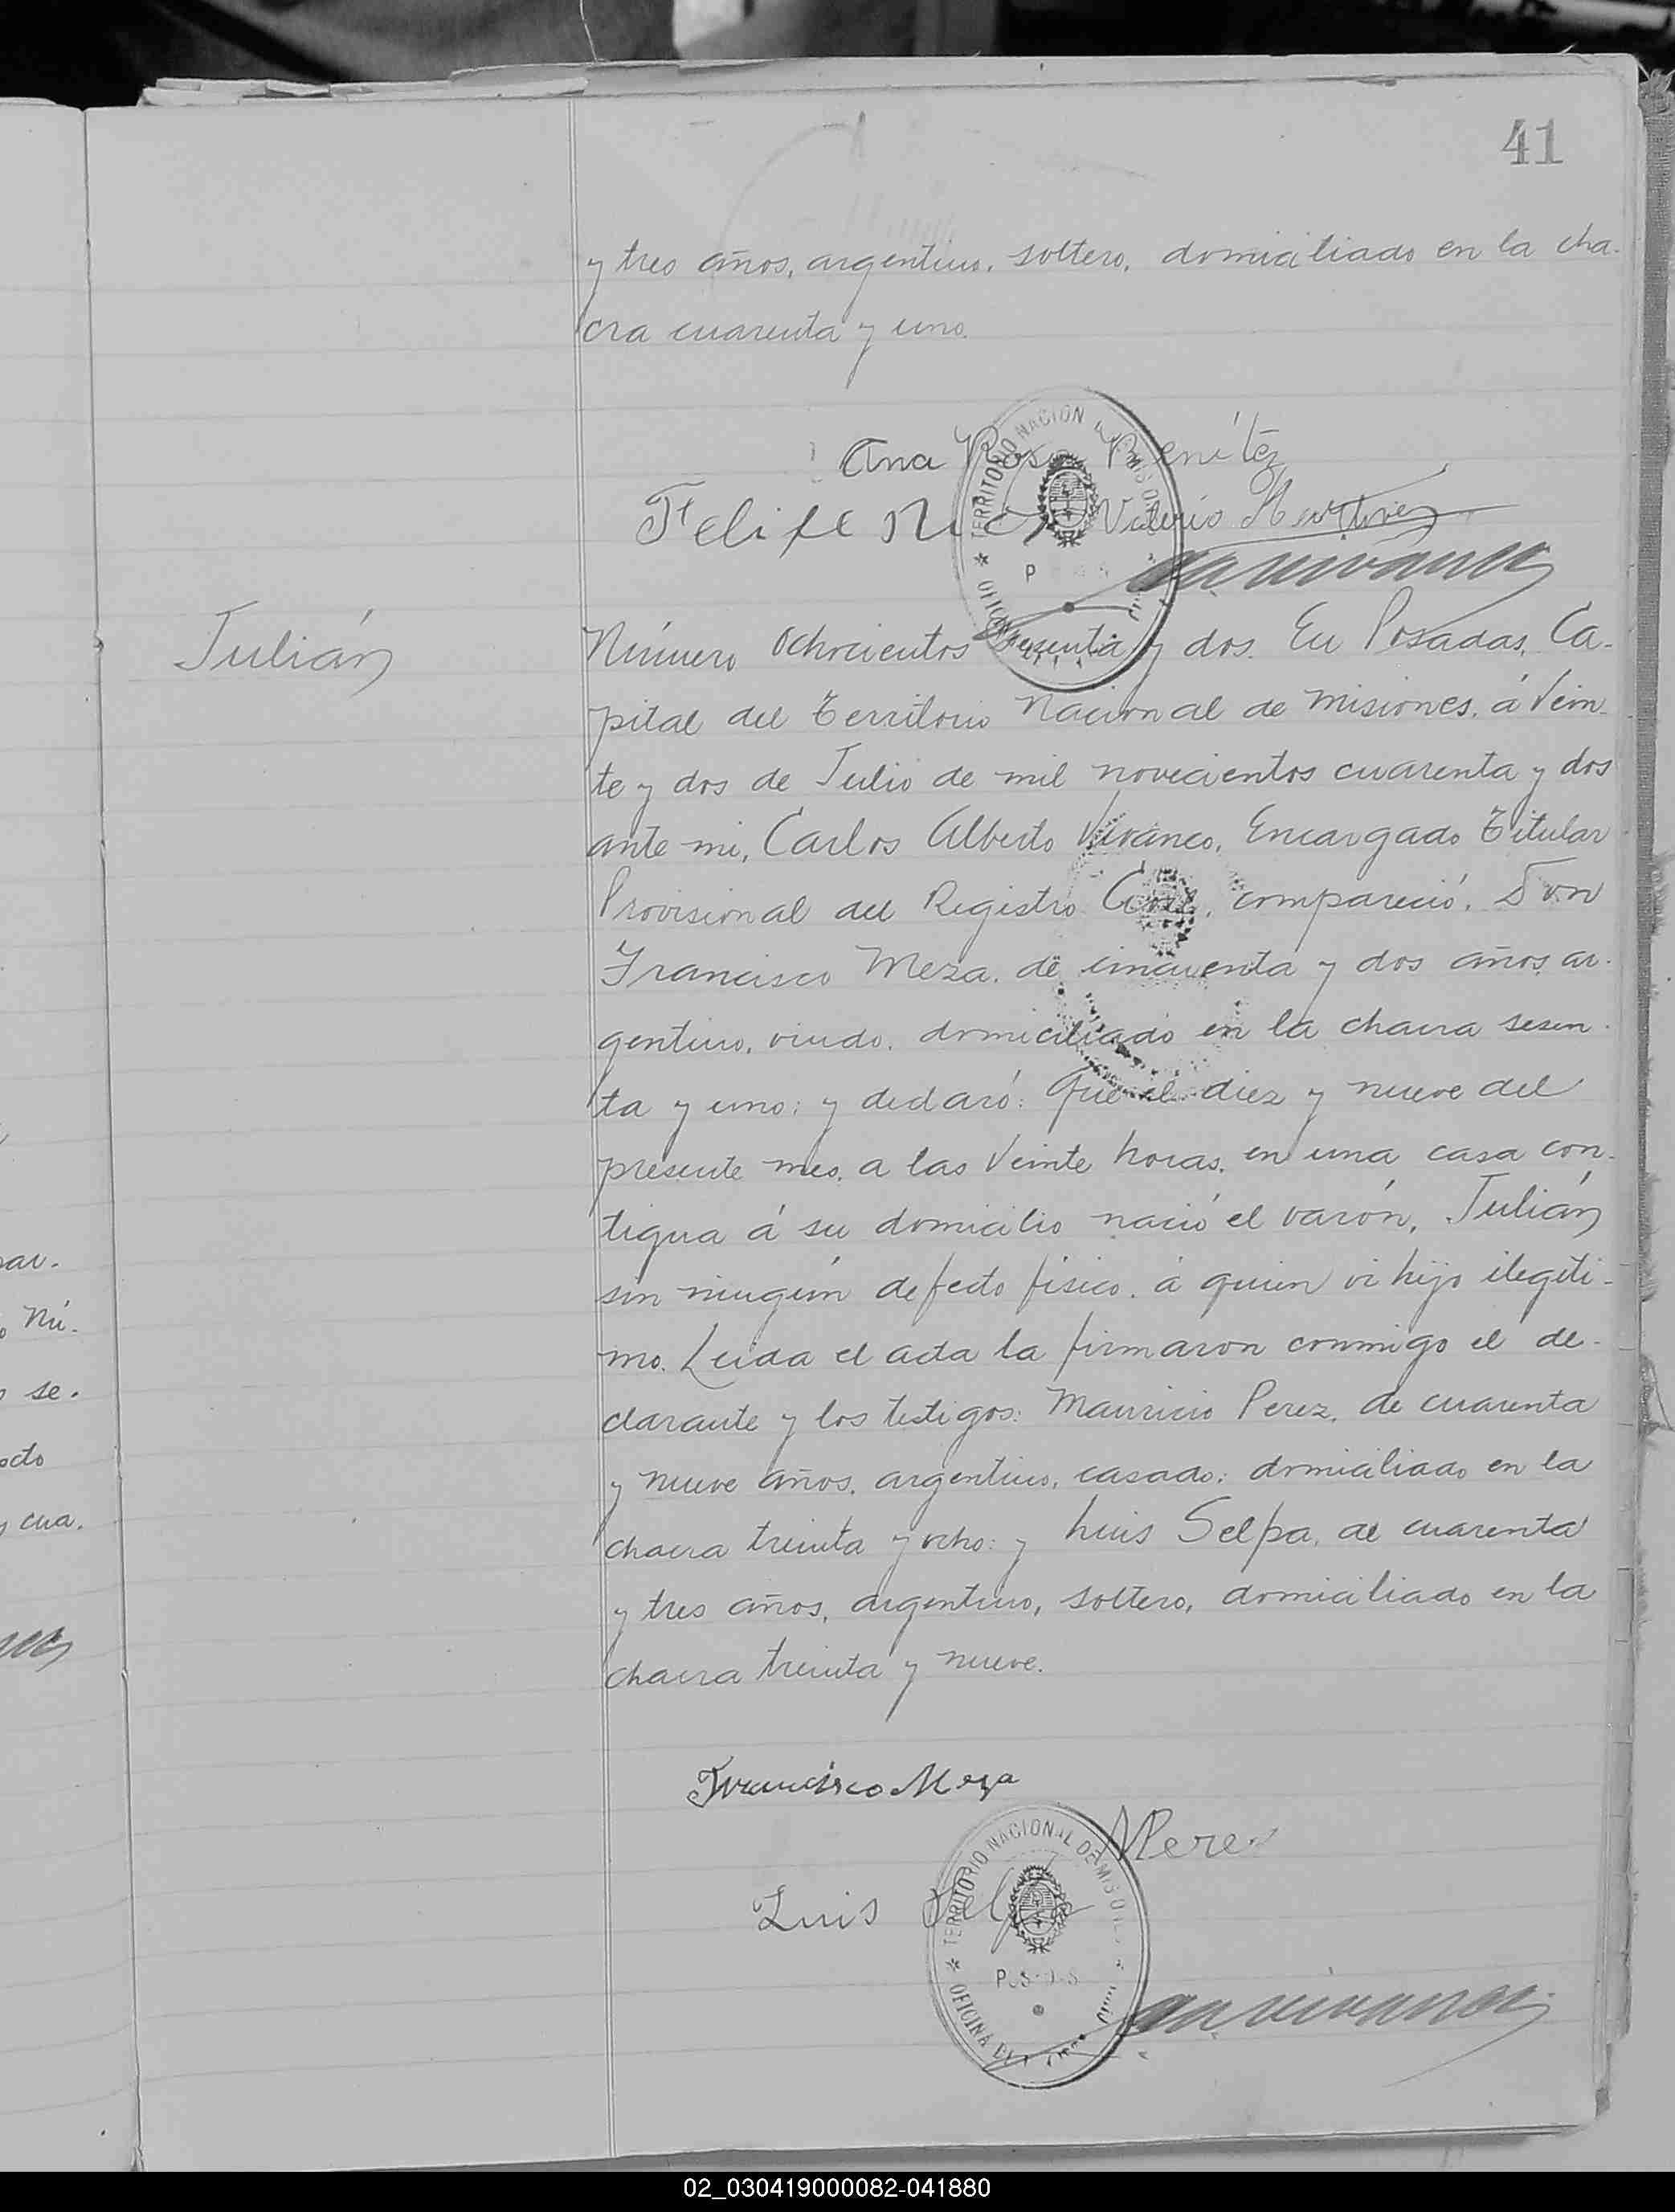 41
y tres años, argentino, soltero, domiciliado en la cha-
cra cuarenta y uno.
Ana Rosa Benítez
Felipe
Valerio
TERRITORIO NACION
P
Julián
Número Ochocientos sesenta y dos. En Posadas, Ca-
pital del Territorio Nacional de Misiones, á Vein-
te y dos de Julio de mil novecientos cuarenta y dos
ante mi, Carlos Alberto Vivanco, Encargado Titular
Provisional del Registro Civil, compareció, Don
Francisco Meza, de cincuenta y dos años, ar-
gentino, viudo, domiciliado en la chacra sesen-
ta y uno; y declaró: Que el diez y nueve del
presente mes, a las Veinte horas, en una casa con-
tigua á su domicilio nació el varón, Julián
sin ningún defecto físico, á quien vi hijo ilegíti-
mo. Leida el acta la firmaron conmigo el de-
clarante y los testigos: Mauricio Perez, de cuarenta
y nueve años, argentino, casado; domiciliado en la
chacra treinta y ocho: y Luis Selpa, de cuarenta
y tres años, argentino, soltero, domiciliado en la
chacra treinta y nueve.
Francisco Meza
MPerez
Luis Selpa
TERRITORIO NACIONAL DE MISIONES
POSADAS
OFICINA DEL
par.
o Nú-
o se.
octo
y cua.
02_030419000082-041880